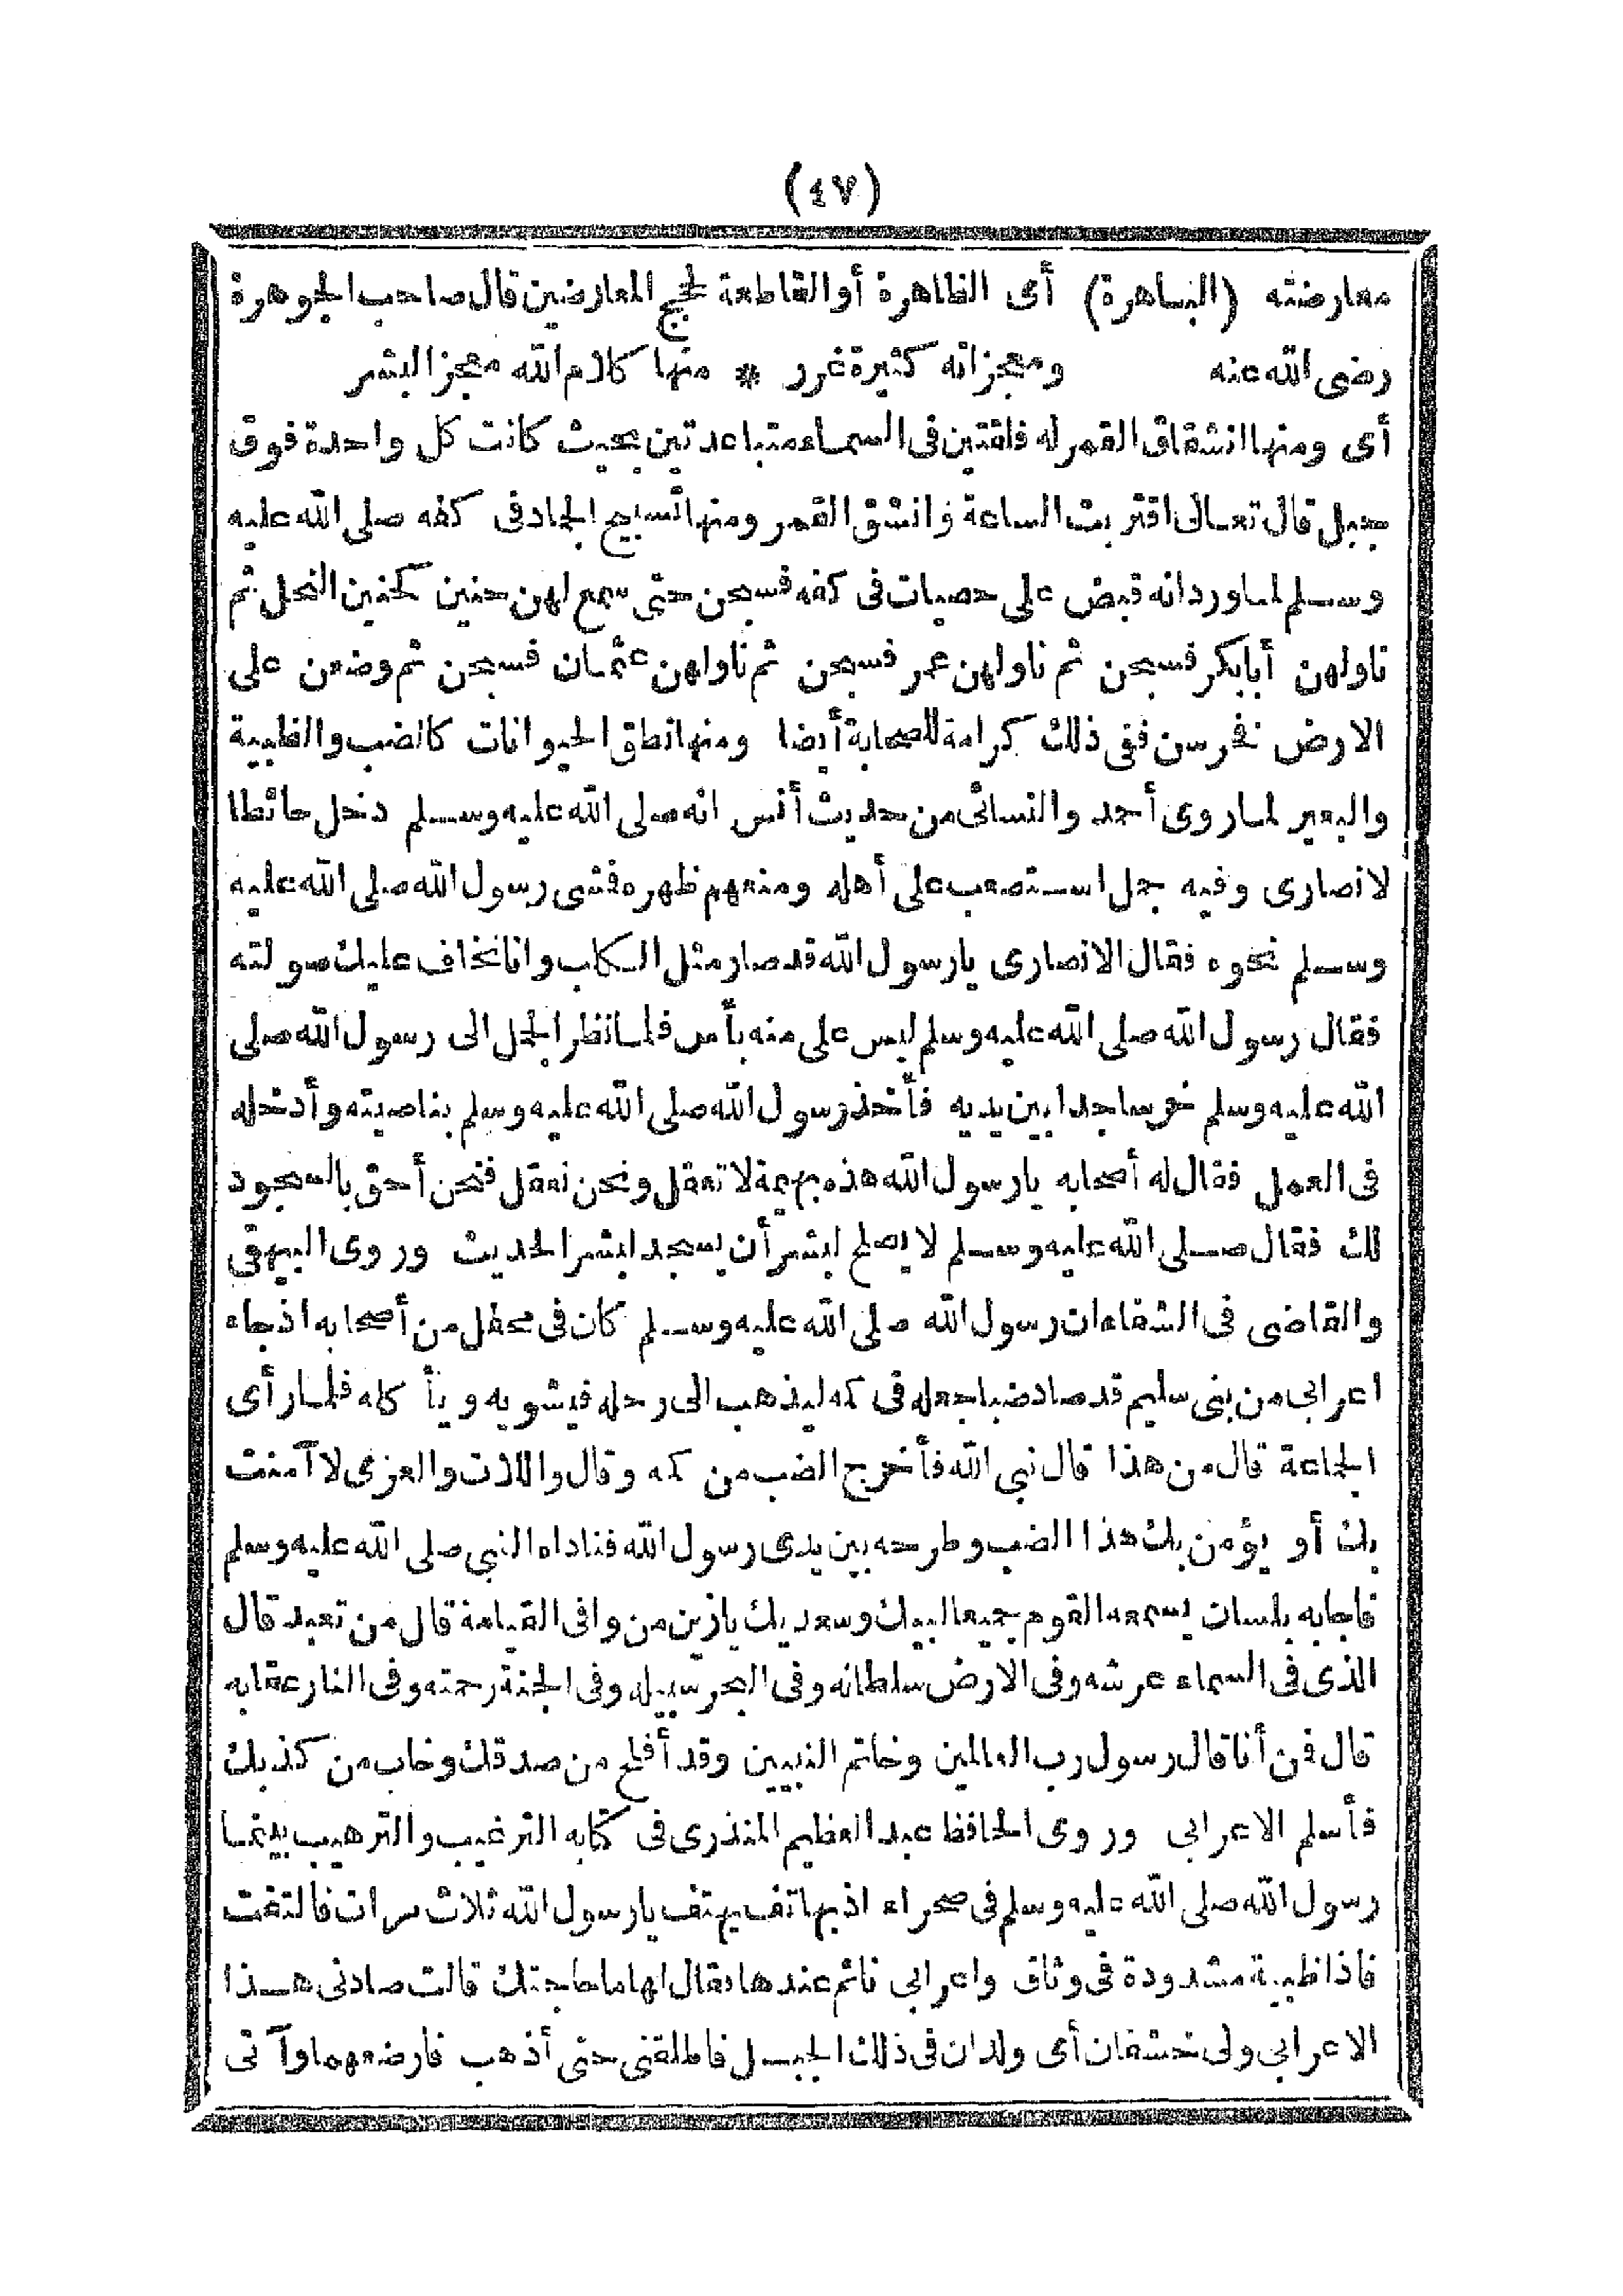 (٤٧)
معارضته (الباهرة) أى الظاهرة أو القاطعة لحجج المعارضين قال صاحب الجوهرة
رضى الله عنه ومعجزاته كثيرة غرر * منها كلام الله معجز البشر
أى ومنها انشقاق القمر له فلقتين فى السماء متباعدتين بحيث كانت كل واحدة فوق
جبل قال تعالى اقتربت الساعة وانشق القمر ومنها تسبيح الجماد فى كفه صلى الله عليه
وسلم لما ورد انه قبض على حصيات فى كفه فسبحن حتى سمع لهن حنين كحنين النحل ثم
ناولهن أبابكر فسبحن ثم ناولهن عمر فسبحن ثم ناولهن عثمان فسبحن ثم وضعن على
الارض نفرسن ففى ذلك كرامة للصحابة أيضا ومنها نطق الحيوانات كالضب والظبية
والبعير لما روى أحمد والنسائى من حديث أنس انه صلى الله عليه وسلم دخل حائطا
لانصارى وفيه جمل استصعب على أهله ومنعهم ظهره فمشى رسول الله صلى الله عليه
وسلم نحوه فقال الانصارى يارسول الله قد صار مثل الكلب وانا نخاف عليك صولته
فقال رسول الله صلى الله عليه وسلم ليس على منه بأس فلما نظر الجمل الى رسول الله صلى
الله عليه وسلم خر ساجدا بين يديه فأخذ رسول الله صلى الله عليه وسلم بناصيته وأدخله
فى العمل فقال له أصحابه يارسول الله هذه بهيمة لا تعقل ونحن نعقل فنحن أحق بالسجود
لك فقال صلى الله عليه وسلم لا يصلح لبشر أن يسجد لبشر الحديث وروى البيهقى
والقاضى فى الشفاء ان رسول الله صلى الله عليه وسلم كان فى محفل من أصحابه اذ جاء
اعرابى من بنى سليم قد صاد ضبا جعله فى كمه ليذهب الى رحله فيشويه ويأكله فلما رأى
الجماعة قال من هذا قال نبي الله فأخرج الضب من كمه وقال واللات والعزى لا آمنت
بك أو يؤمن بك هذا الضب وطرحه بين يدى رسول الله فناداه النبي صلى الله عليه وسلم
فاجابه بلسان يسمعه القوم جميعا لبيك وسعديك يازين من وافى القيامة قال من تعبد قال
الذى فى السماء عرشه وفى الارض سلطانه وفى البحر سبيله وفى الجنة رحمته وفى النار عقابه
قال فمن أنا قال رسول رب العالمين وخاتم النبيين وقد أفلح من صدقك وخاب من كذبك
فأسلم الاعرابى وروى الحافظ عبد العظيم المنذرى فى كتابه الترغيب والترهيب بينما
رسول الله صلى الله عليه وسلم فى صحراء اذ بهاتف يهتف يارسول الله ثلاث مرات فالتفت
فاذا ظبية مشدودة فى وثاق واعرابى نائم عندها فقال لها ما حاجتك قالت صادنى هذا
الاعرابى ولى خشفان أى ولدان فى ذلك الجبل فاطلقنى حتى أذهب فارضعهما وآتى